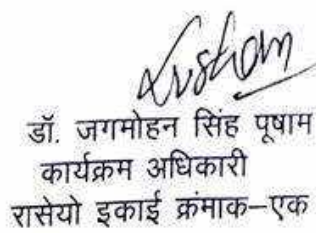 डॉ. जगमोहन सिंह पूषाम
कार्यक्रम अधिकारी
रासेयो इकाई क्रंमाक–एक